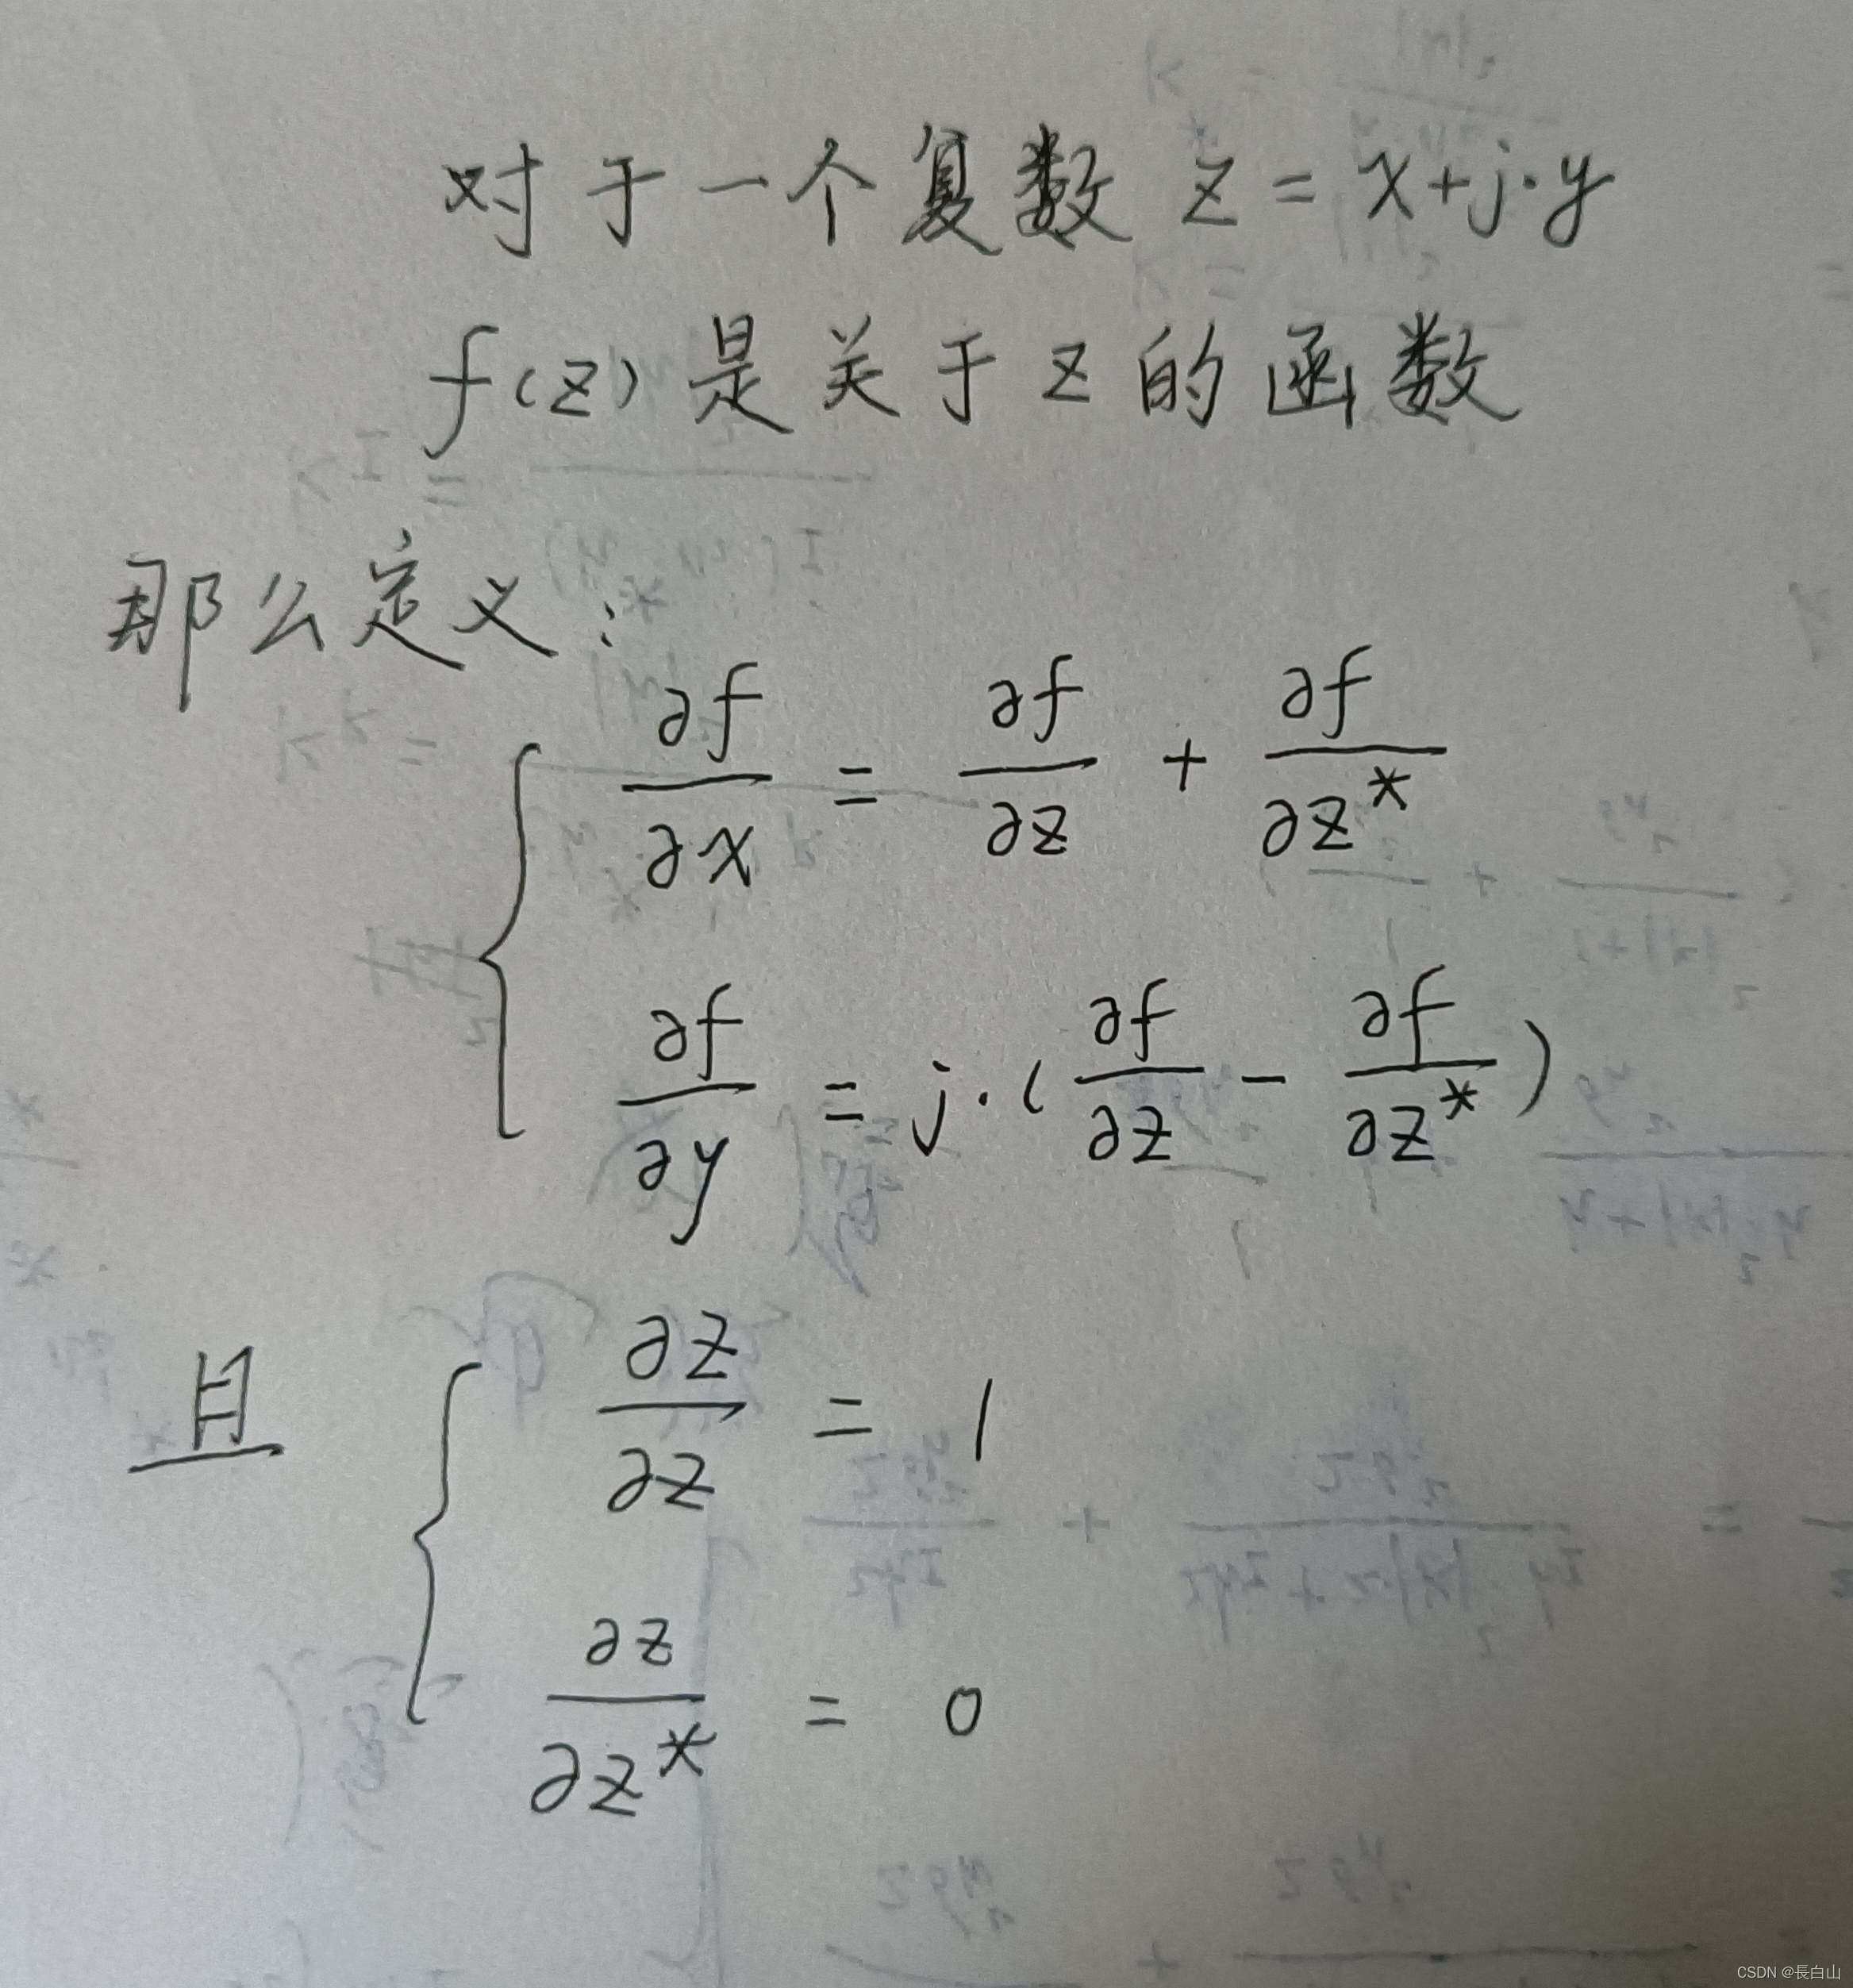 对于一个复数 z = x+j·y
f(z) 是关于 z 的函数
那么定义:
∂f/∂x = ∂f/∂z + ∂f/∂z*
∂f/∂y = j·(∂f/∂z - ∂f/∂z*)
且
∂z/∂z = 1
∂z/∂z* = 0
CSDN @長白山